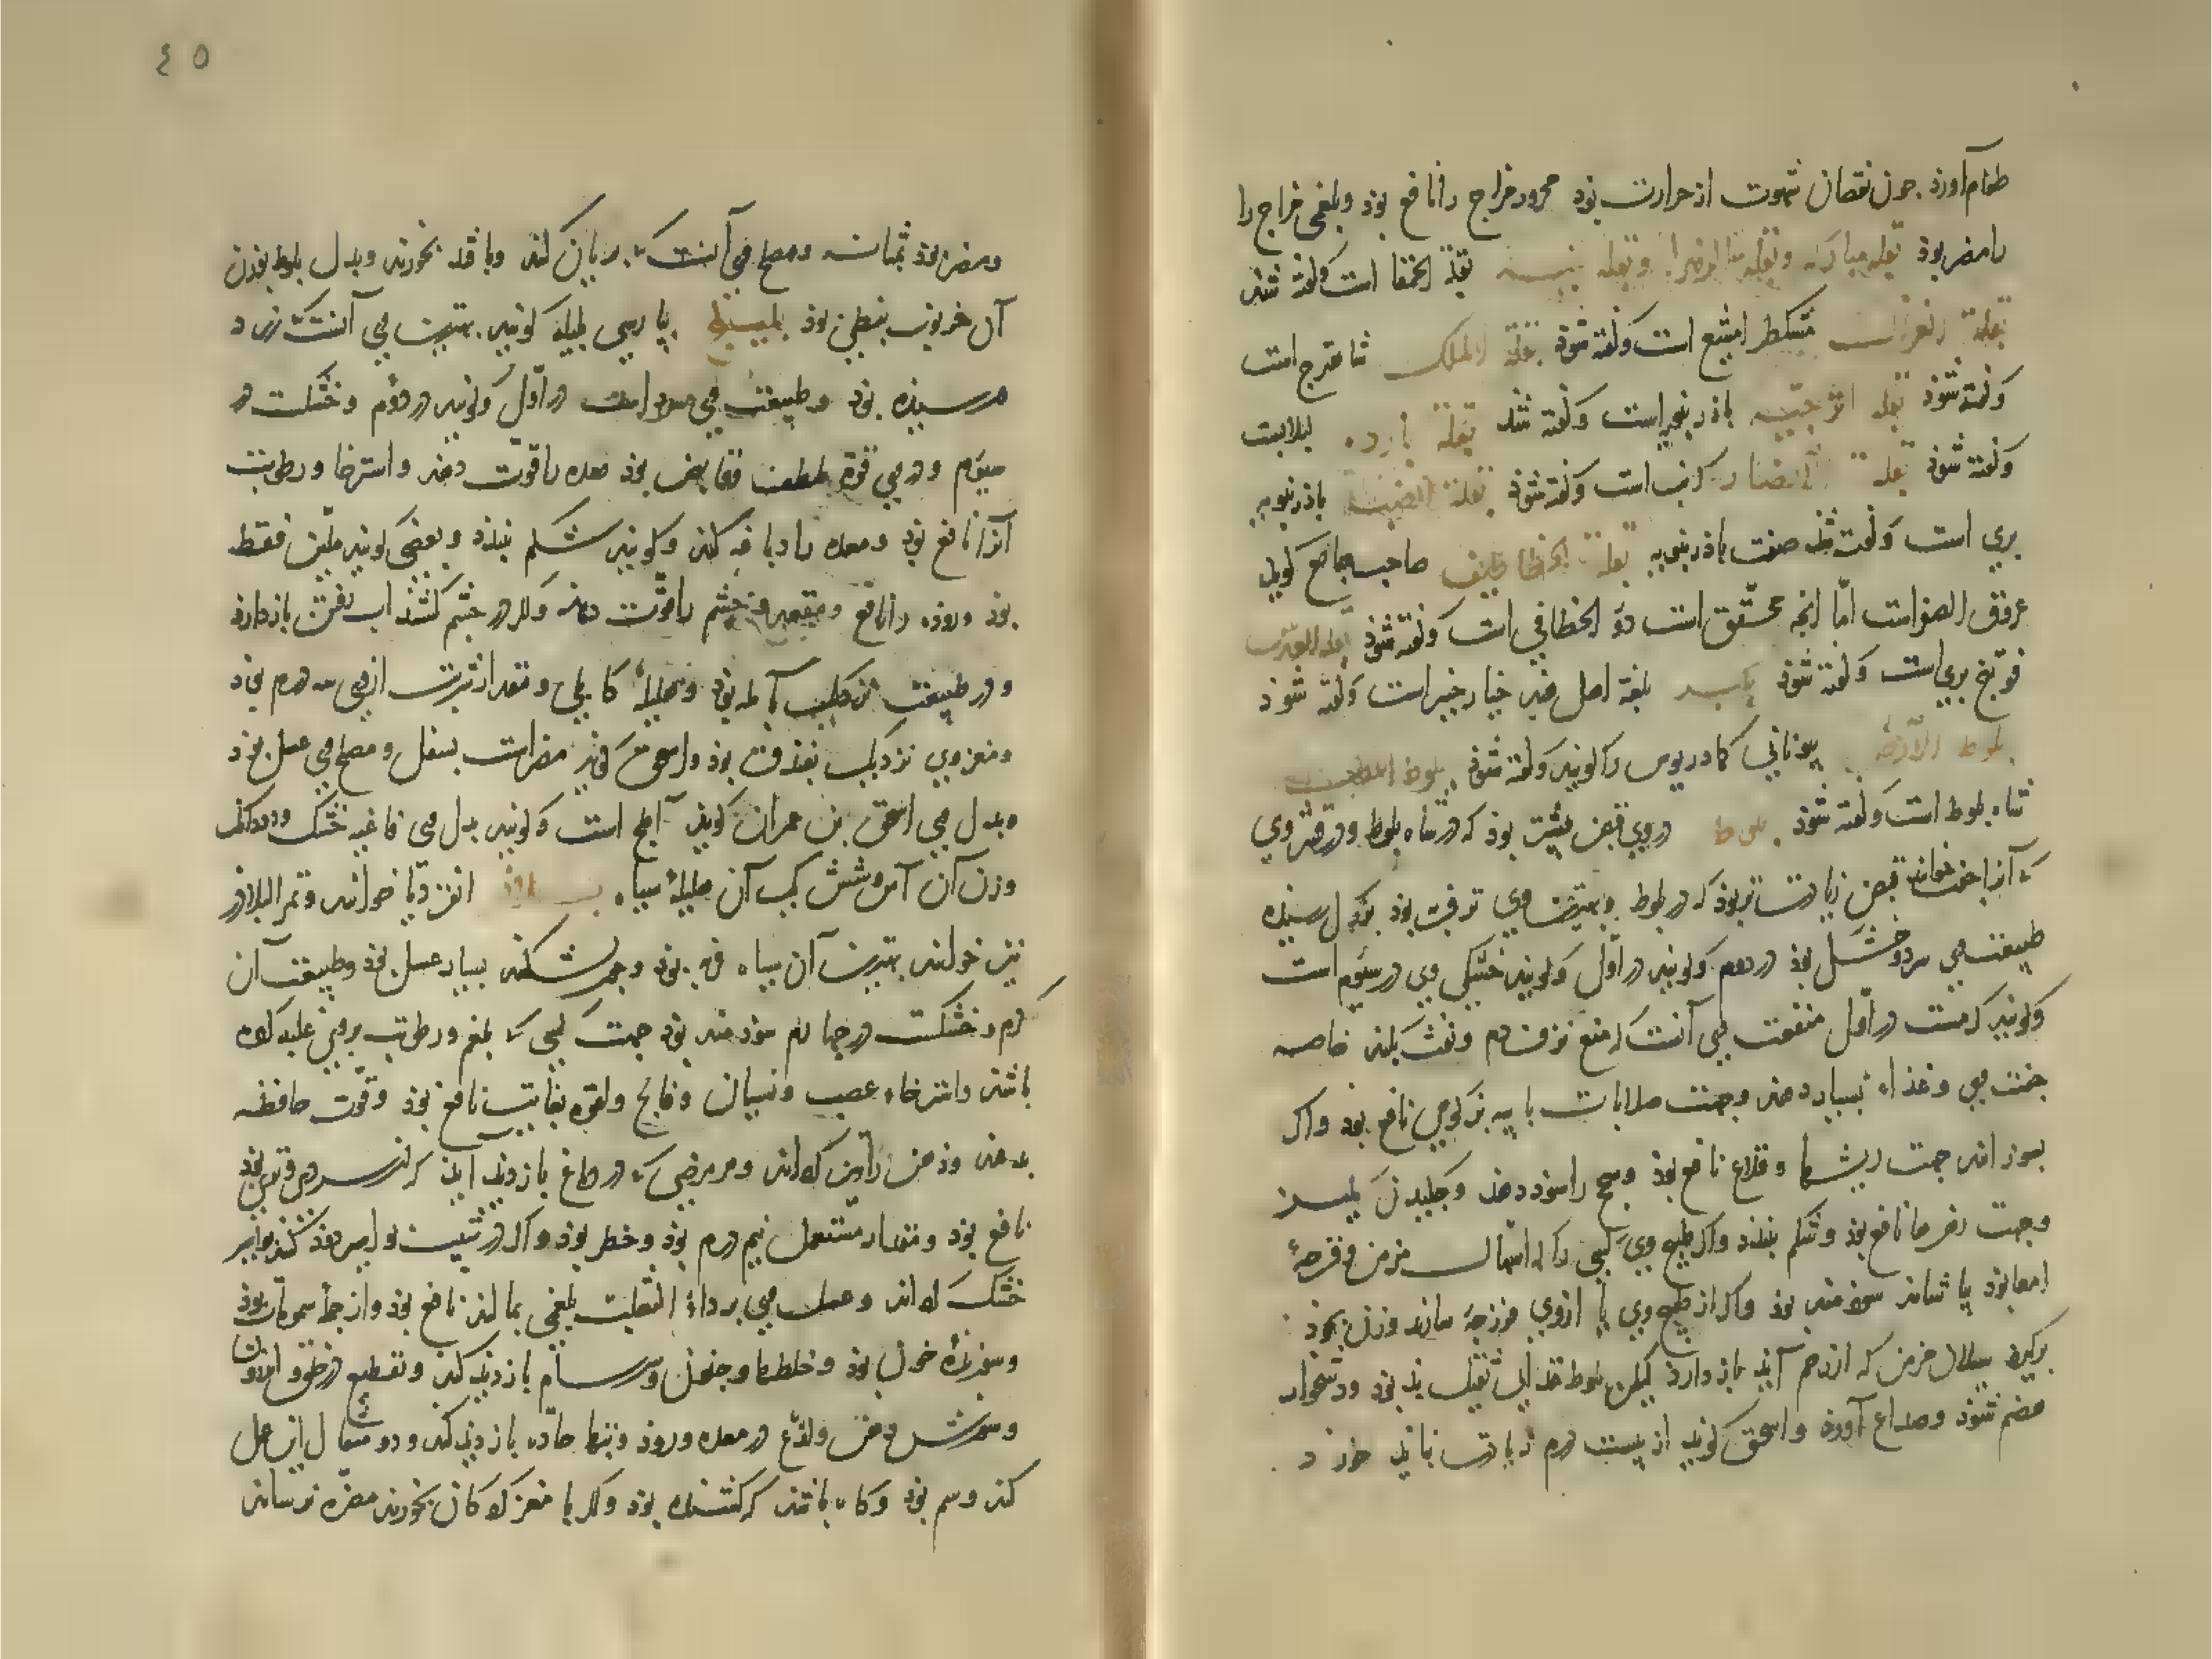 طعام آورد جون نقصان شهوت از حرارت بود محرور مزاج را نافع بود وبلغمی مزاج را
را مضر بود بقله مباركه وبقلة الزهرا وبقله لینه بقلة الحمقا است وكفته شد
بقلة الغزال مشكطرامشیع است وكفته شود بقلة الملك شاهترج است
وكفته شود بقله اترجیه باذرنبویه است وكفته شد بقلة بارده لبلابست
وكفته شود بقلة الانصار كرنب است وكفته شود بقلة الضب باذرنبویه
بری است وكفته شد صفت باذرنبویه بقلة الخطاطیف صاحب جامع كوید
عروق الصفر است امّا انجه محقّق است دوّ الخطافی است وكفته شود
فوتنج بری است وكفته شود بلغة اهل خیار خیر است وكفته شود
بلوط الارض بیونانی كمادریوس را كویند وكفته شود بلوط الملك
شاه بلوط است وكفته شود بلوط در وی قبض بیشتر بود كه در شاه بلوط ودر قشر وی
كه آنرا جفت خوانند قبض زیادت تر بود كه در بلوط وبهترین وی تر فربه بود بكمال رسیده
طبیعت وی سرد وخشك بود در دوم وكویند در اوّل وكویند خشكی وی در سیّوم است
وكویند كرمست در اوّل منفعت وی آنست كه منع نزف دم ونفث بكند خاصه
جفت وی وغذاء بسیار دهد وجهت صلابات با پیه بز كوهی نافع بود واكر
بسوزانند جهت ریشها وقلاع نافع بود وسحج را سود دهد
وجهت زهرها نافع بود وشكم ببندد واكر طبیخ وی كسی را كه اسهال مزمن وقرحهٔ
امعا بود بیاشامد سودمند بود واكر از طبیخ وی یا از وی فرزجه سازند وزن بخود
بركیرد سیلان مزمن كه از رحم آید باز دارد لیكن بلوط غذائی ثقیل بد بود ودشخوار
هضم شود وصداع آورد واسحق كوید از بیست درم زیادت نباید خورد
٤٥
ومضر بود بمثانه ومصلح وی آنست كه بریان كنند وباقند بخورند وبدل بلوط بوزن
آن خرنوب نبطی بود بلیلج بپارسی بلیله كویند بهترین وی آنست كه زرد
ورسیده بود وطبیعت وی سرد است در اوّل وكویند در دوم وخشكست در
سیوم ودر وی قوة ملطف وقابض بود معده را قوّت دهد واسترخا ورطوبت
آنرا نافع بود ومعده را دباغه كند وكویند شكم ببندد وبعضی كویند ملیّن فقط
بود وروده را نافع ومقعد وچشم را قوّت دهد واكر در چشم كشند آب رفتن باز دارد
ودر طبیعت نزدیك بآمله بود وهلیلهٔ كابلی ومقدار شربت از وی سه درم بود
ومغز وی نزدیك بفندق بود واسحق كوید مضر است بسفل ومصلح وی عسل بود
وبدل وی اسحق بن عمران كوید آمله است وكویند بدل وی فاغیه خشك
وزن آن آس وشش یك آن هلیلهٔ سیاه بلاذر انقردیا خوانند وثمر البلاذر
نیز خوانند بهترین آن سیاه فربه بود وجون بشكنند بسیار عسل بود وطبیعت آن
كرم وخشكست در چهارم سودمند بود جهت كسی كه بلغم ورطوبت بر وی غلبه كرده
باشد واسترخاء عصب ونسیان وفالج ولقوه بغایت نافع بود وقوّت حافظه
بدهد وذهن را تیز كرداند وهر مرضی كه در دماغ بازدید آید كه از سردی وتری بود
نافع بود ومقدار مستعمل نیم درم بود وخطر بود واكر در شیب دود كنند بواسیر
خشك كرداند وعسل وی بر داء الثعلب بلغمی بمالند نافع بود واز جملهٔ سموم بود
وسوزندهٔ خون بود وخلطها وجنون وسرسام بازدید كند وتقطیع در حلق واندرون
وسوزش دهن ولذع در معده وروده وتبها حادّه بازدید كند ودو مثقال از این عمل
كند وسم بود وكاه باشد كه كشنده بود واكر با مغز كردكان بخورند مضرّه نرساند